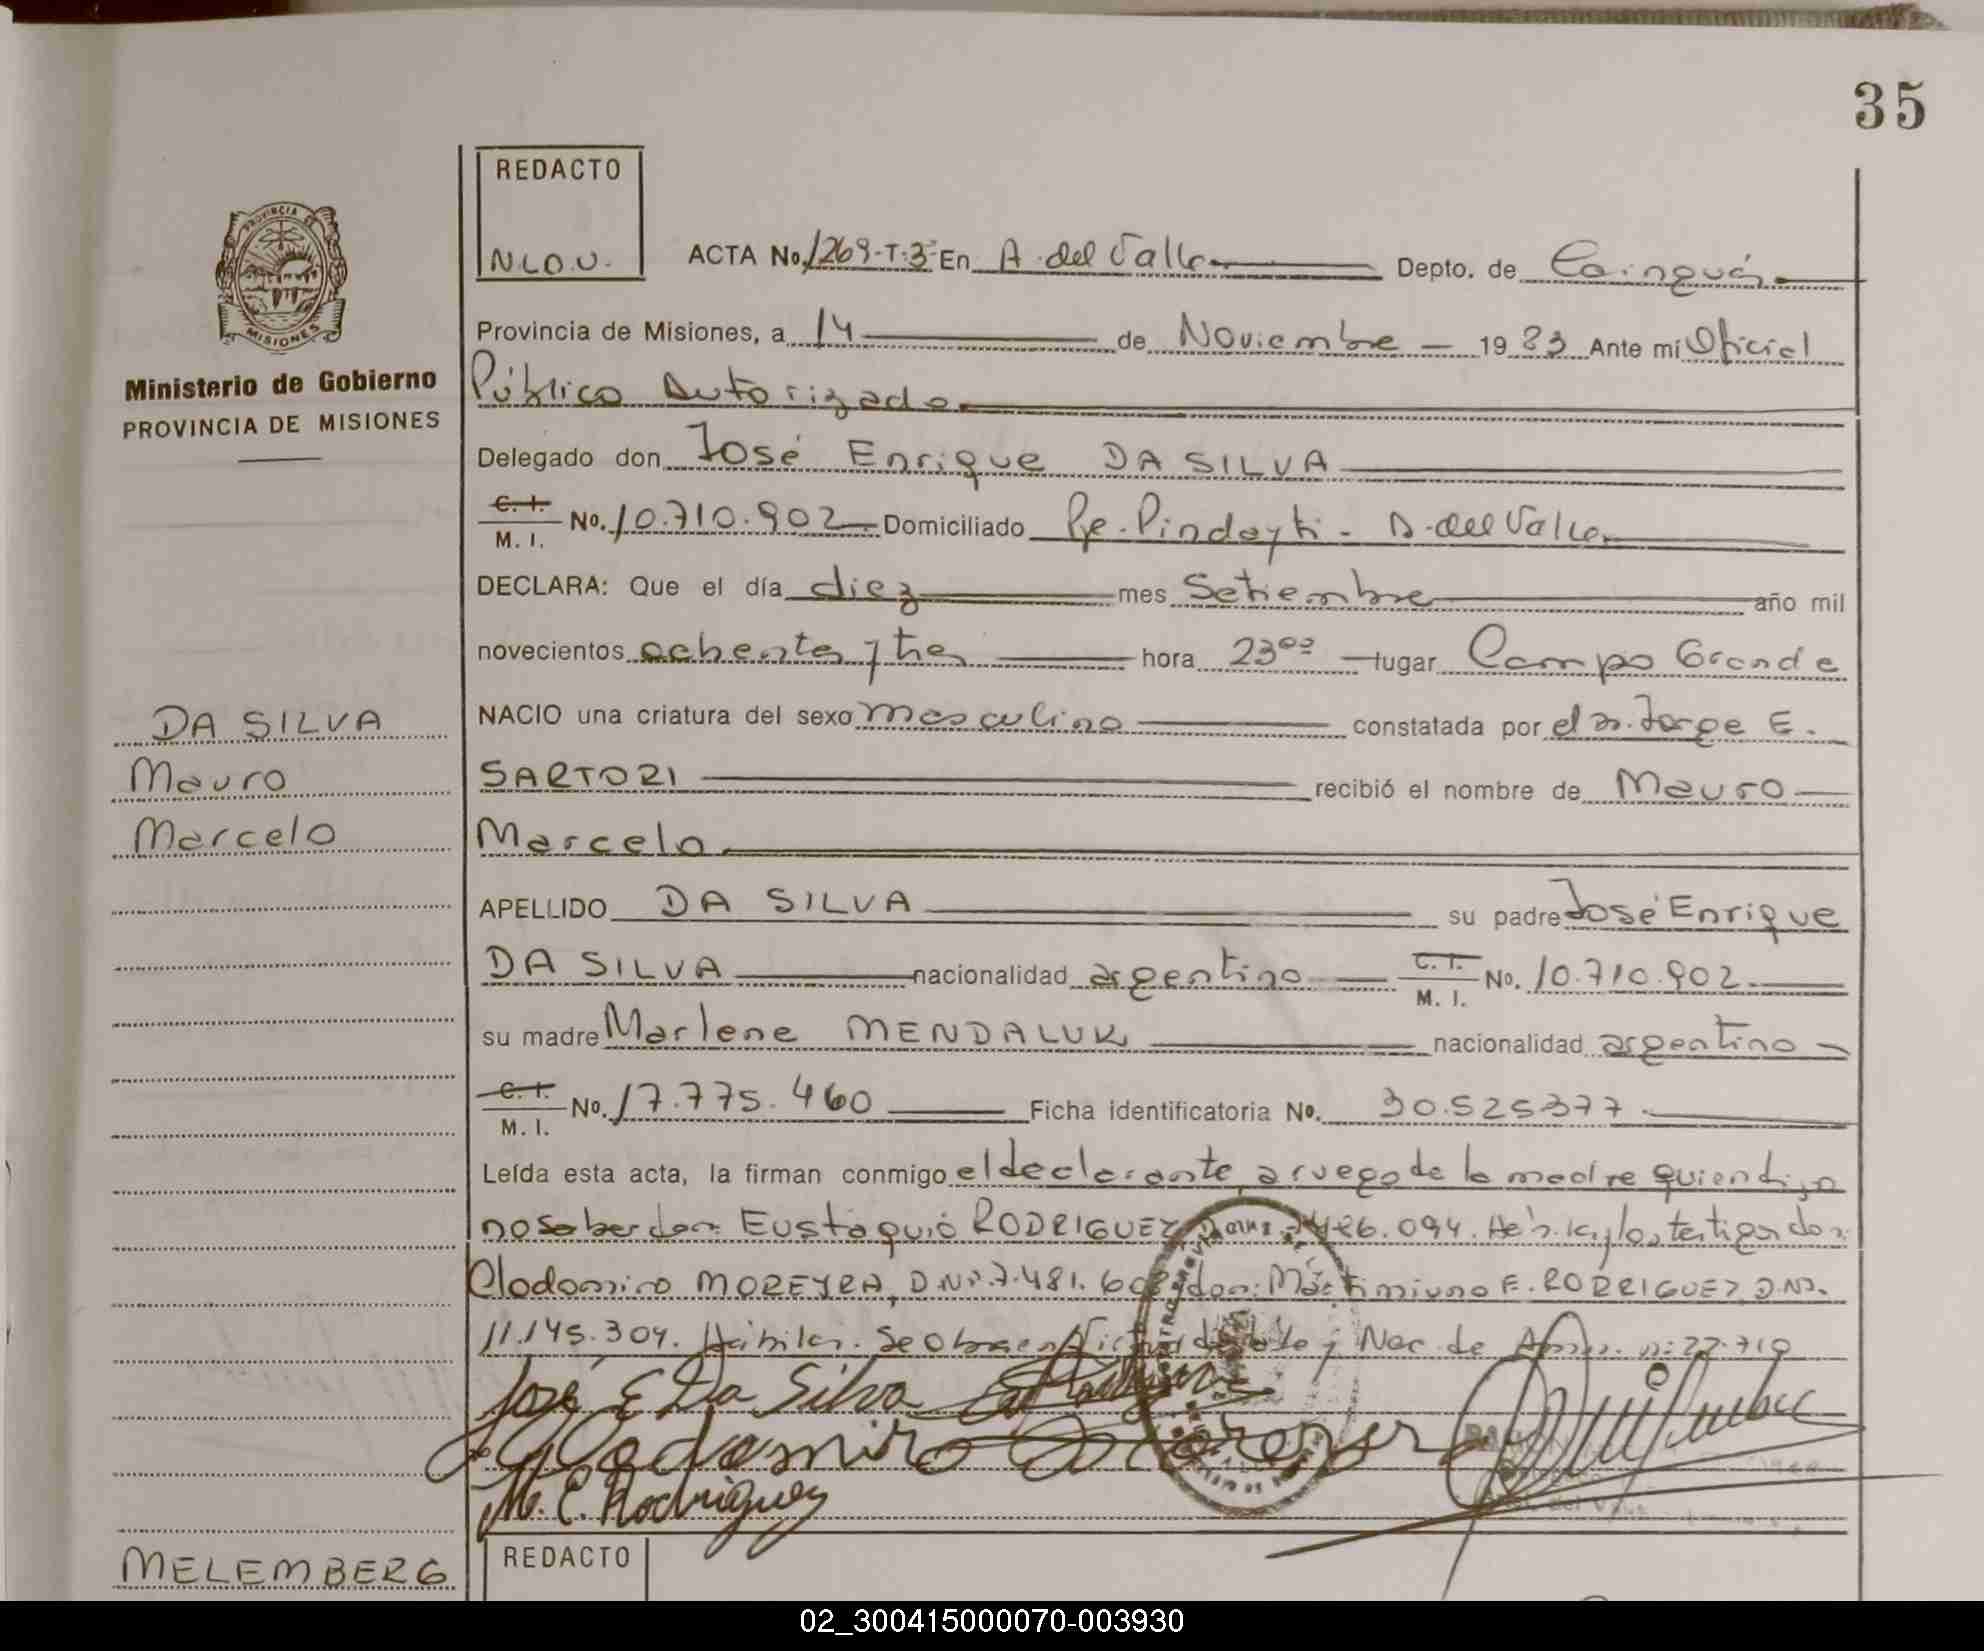 35
REDACTO
N.L.D.V.
PROVINCIA DE
MISIONES
Ministerio de Gobierno
PROVINCIA DE MISIONES
ACTA No. 1269-T:3- En A. del Valle Depto. de Cainguás
Provincia de Misiones, a 14 de Noviembre 1983 Ante mi Oficial
Público Autorizado
Delegado don José Enrique DA SILVA
C. I. M. I. No. 10.710.902 Domiciliado Pje. Pindayti - A. del Valle
DECLARA: Que el día diez mes Setiembre año mil
novecientos ochenta y tres hora 23⁰⁰ lugar Campo Grande
DA SILVA
NACIO una criatura del sexo masculino constatada por el Dr. Jorge E.
Mauro
SARTORI recibió el nombre de Mauro
Marcelo
Marcelo
APELLIDO DA SILVA su padre José Enrique
DA SILVA nacionalidad argentino C. I. M. I. No. 10.710.902
su madre Marlene MENDALUK nacionalidad argentino
C. I. M. I. No. 17.775.460 Ficha identificatoria No. 30.525377
Leída esta acta, la firman conmigo el declarante, a ruego de la madre quien dijo
no saber don: EUSTAQUIO RODRIGUEZ, 426.094. Hábil y los testigos don:
Clodomiro MOREYRA, D.Nº.7.481.608 don: Maximiano E. RODRIGUEZ D.Nº.
11.145.304. Hábiles. Se Nac. de nº: 22.719
José E Da Silva
Clodomiro Moreyra
M. E. Rodriguez
MELEMBERG
REDACTO
02_300415000070-003930